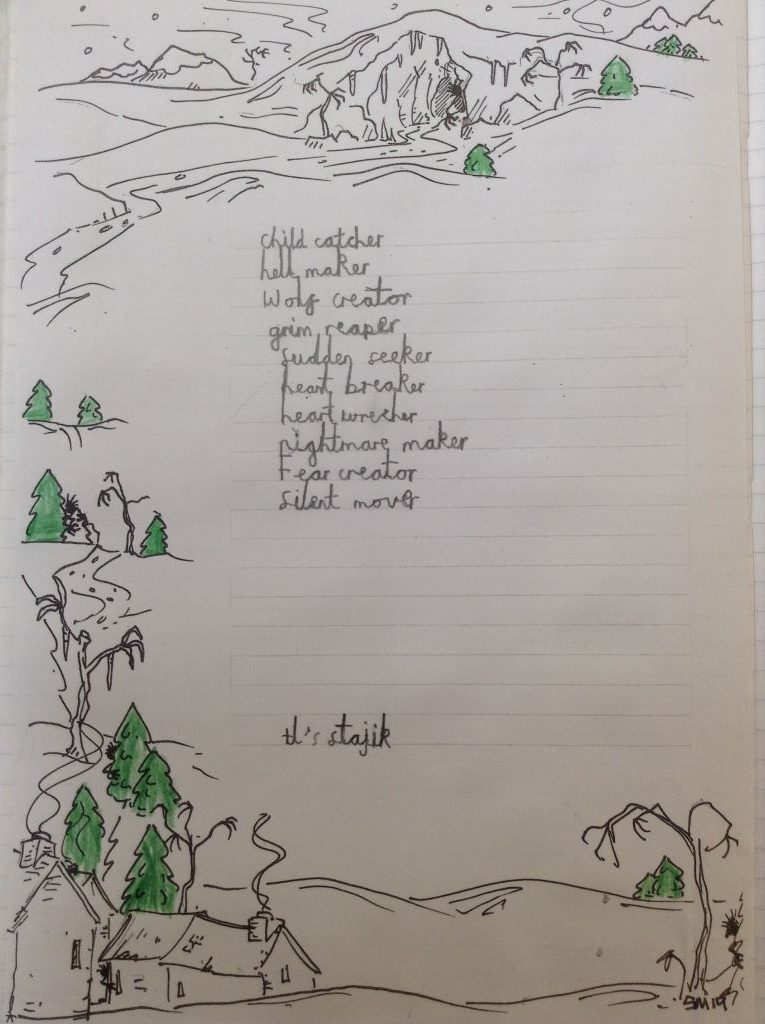 child catcher
hell maker
Wolf creator
grim reaper
Sudden seeker
heart breaker
heart wrecher
nightmare maker
Fear creator
Silent mover
stajik